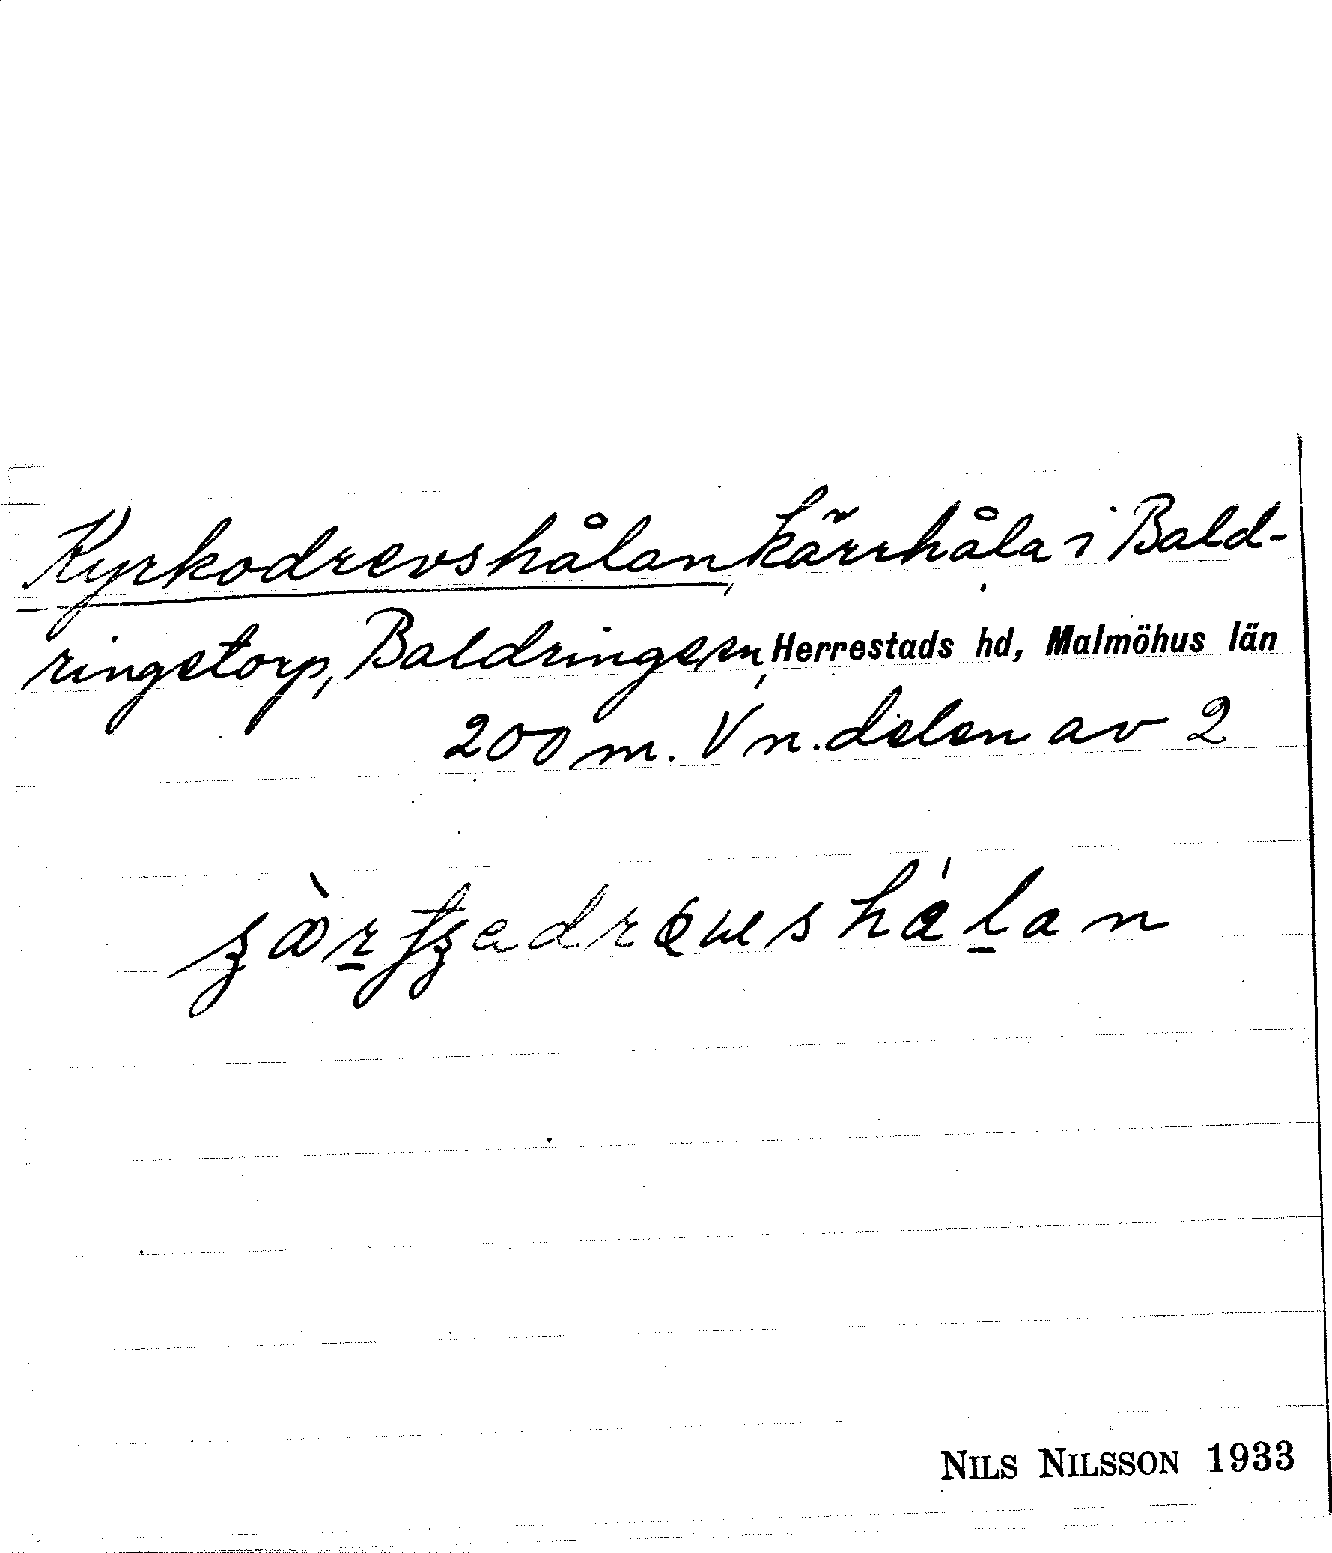 Kyrkodrevshålan, kärrhåla i Bald-
ringetorp, Baldringe sn, Herrestads hd, Malmöhus län
200 m. V n. delen av 2
NILS NILSSON 1933